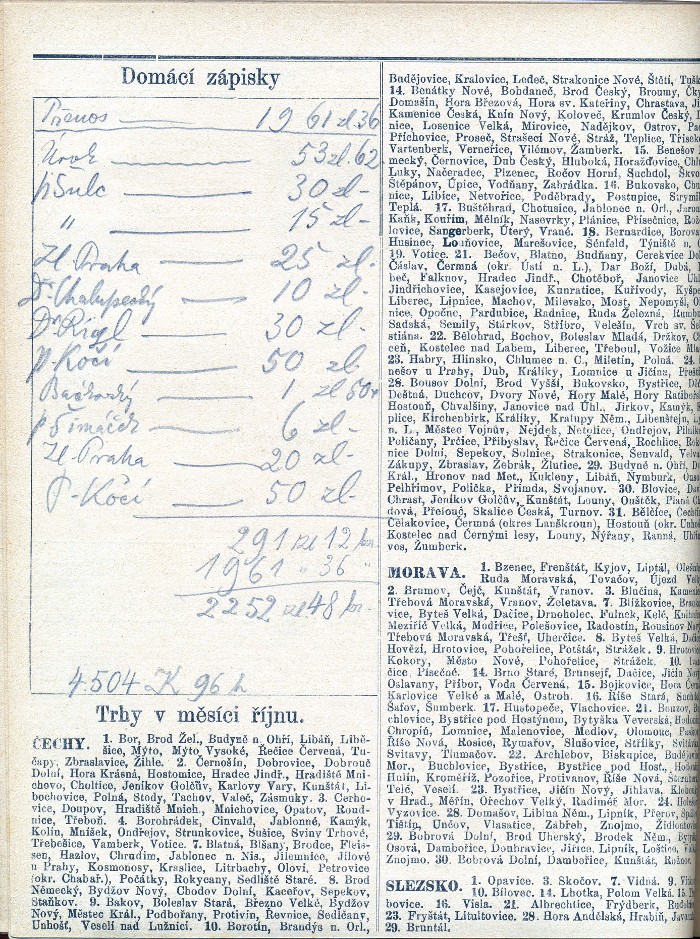 Domácí zápisky
Přenos 1961 zl 36
Úrok 53 zl. 62
p. Šulc 30 zl-
„ 15 zl-
Zl. Praha 25 zl-
Dr. Chalupecký 10 zl
Dr Rígl 30 zl-
p. Kočí 50 zl-
1 zl 50
p. Šimáček 6 zl-
Zl. Praha 20 zl-
P. Kočí 50 zl-
291 zl 12 kr
1961 „ 36 „
2252 zl 48 kr-
4.504 K 96 h
Trhy v měsíci říjnu.
ČECHY. 1. Bor, Brod Žel., Budyně n. Ohří, Libáň, Libě-
šice, Mýto, Mýto Vysoké, Řečice Červená, Tu-
čapy, Zbraslavice, Žihle. 2. Černošín, Dobrovice, Dobrouč
Dolní, Hora Krásná, Hostomice, Hradec Jindř., Hradiště Mni-
chovo, Choltice, Jeníkov Golčův, Karlovy Vary, Kunštát, Li-
bochovice, Polná, Stody, Tschov, Valeč, Zásmuky. 3. Cerho-
vice, Doupov, Hradiště Mnich., Mnichovice, Opatov, Roud-
nice, Třeboň. 4. Borohrádek, Cinvald, Jablonné, Kamýk,
Kolín, Mníšek, Ondřejov, Strunkovice, Sušice, Sviny Trhové,
Třebešice, Vamberk, Votice. 7. Blatná, Blšany, Brodce, Fleis-
sen, Hazlov, Chrudim, Jablonec n. Nis., Jilemnice, Jílové
u Prahy, Kosmonosy, Kraslice, Litrbachy, Oloví, Petrovice
(okr. Chabař.), Počátky, Rokycany, Sedliště Staré. 8. Brod
Německý, Bydžov Nový, Chodov Dolní, Kaceřov, Sepekov,
Staňkov. 9. Bakov, Boleslav Stará, Březno Velké, Bydžov
Nový, Městec Král., Podbořany, Protivín, Řevnice, Sedlčany,
Unhošť, Veselí nad Lužnicí. 10. Borotín, Brandýs n. Orl.,
Budějovice, Kralovice, Ledeč, Strakonice Nové, Štětí,
14. Benátky Nové, Bohdaneč, Brod Český, Broumy,
Domašín, Hora Březová, Hora sv. Kateřiny, Chrastava,
Kamenice Česká, Knín Nový, Koloveč, Krumlov Český,
nice, Losenice Velká, Mirovice, Nadějkov, Ostrov,
Příchovice, Proseč, Strašecí Nové, Stráž, Teplice,
Vartenberk, Verneřice, Vilémov, Žamberk. 15. Benešov
mecký, Černovice, Dub Český, Hluboká, Horažďovice,
Luky, Načeradec, Plzenec, Ročov Horní, Suchdol,
Štěpánov, Úpice, Vodňany, Zabrádka. 16. Bukovsko,
nice, Libice, Netvořice, Poděbrady, Postupice,
Teplá. 17. Buštěhrad, Chotusice, Jablonec n. Orl.,
Kaňk, Kouřim, Mělník, Nasevrky, Plánice, Písečnice,
lovice, Sangerberk, Úterý, Vrané. 18. Bernardice,
Husinec, Louňovice, Marešovice, Sénfeld, Týniště n.
19. Votice. 21. Bečov, Blatno, Budňany, Cerekvice
Čáslav, Čermná (okr. Ústí n. L.), Dar Boží, Dubá,
beč, Falknov, Hradec Jindř., Chotěboř, Janovice
Jindřichovice, Kasejovice, Kunratice, Kuřívody,
Liberec, Lipnice, Machov, Milevsko, Most, Nepomyšl,
nice, Opočno, Pardubice, Radnice, Ruda Železná,
Sadská, Semily, Stárkov, Stříbro, Velešín, Vrch sv.
stiána. 22. Bělohrad, Bochov, Boleslav Mladá, Držkov,
ceň, Kostelec nad Labem, Liberec, Třeboul, Vožice
23. Habry, Hlinsko, Chlumec n. C., Miletín, Polná. 24.
nešov u Prahy, Dub, Králíky, Lomnice u Jičína,
28. Bousov Dolní, Brod Vyšší, Bukovsko, Bystřice,
Deštná, Duchcov, Dvory Nové, Hory Malé, Hory
Hostouň, Chvalšiny, Janovice nad Úhl., Jirkov, Kamýk,
plice, Kirchenbirk, Králíky, Kralupy Něm., Libenštejn,
n. L., Městec Vojnův, Nejdek, Netolice, Ondřejov,
Poličany, Prčice, Přibyslav, Řečice Červená, Rochlice,
nice Dolní, Sepekov, Solnice, Strakonice, Šenvald,
Zákupy, Zbraslav, Žebrák, Žlutice. 29. Budyně n. Ohří,
Král., Hronov nad Met., Kukleny, Libáň, Nymburk,
Pelhřimov, Polička, Přimda, Svojanov. 30. Blovice,
Chrast, Jeníkov Golčův, Kunštát, Louny, Ouštěk,
dová, Přelouč, Skalice Česká, Turnov. 31. Bělčice,
Čelákovice, Čermná (okres Lanškroun), Hostouň (okr.
Kostelec nad Černými lesy, Louny, Nýřany,
vos, Žumberk.
MORAVA. 1. Bzenec, Frenštát, Kyjov, Liptál,
Ruda Moravská, Tovačov, Újezd
2. Brumov, Čejč, Kunštát, Vranov. 3. Blučina,
Třebová Moravská, Vranov, Želetava. 7. Blížkovice,
vice, Byteš Velká, Dačice, Drnoholec, Fulnek, Kelč,
Meziříč Velká, Modřice, Polešovice, Radostín, Rousinov
Třebová Moravská, Třešť, Uherčice. 8. Byteš Velká,
Hovězí, Hrotovice, Pohořelice, Potštát, Strážek. 9.
Kokory, Město Nové, Pohořelice, Strážek. 10.
čice, Písečné. 14. Brno Staré, Brunsejf, Dačice, Jičín
Oslavany, Příbor, Voda Červená. 15. Bojkovice, Hora
Karlovice Velké a Malé, Ostroh. 16. Říše Stará,
Šafov, Šumberk. 17. Hustopeče, Vlachovice. 21.
chlovice, Bystřice pod Hostýnem, Bytyška Veverská,
Chropíň, Lomnice, Malenovice, Medlov, Olomouc,
Říše Nová, Rosice, Rymařov, Slušovice, Střílky,
Svitavy, Tlumačov. 22. Archlebov, Biskupice,
Mor., Buchlovice, Bystřice, Bystřice pod Host.,
Hulín, Kroměříž, Pozořice, Protivanov, Říše Nová,
Telč, Veselí. 23. Bystřice, Jičín Nový, Jihlava,
v Hrad., Měřín, Ořechov Velký, Radiměř Mor. 24.
Vyzovice. 28. Domašov, Libina Něm., Lipník, Přerov,
Tišťín, Unčov, Vlasatice, Zábřeh, Znojmo,
29. Bobrová Dolní, Brod Uherský, Brodek Něm.,
Osová, Dambořice, Doubravice, Jiřice, Lipník, Loštice,
Znojmo. 30. Bobrová Dolní, Dambořice, Kunštát,
SLEZSKO. 1. Opavice. 3. Skočov. 7. Vidná. 9.
10. Bílovec. 14. Lhotka, Polom Velká.
bovice. 16. Visla. 21. Albrechtice, Frýdberk,
23. Fryštát, Litultovice. 28. Hora Andělská, Hrabiň,
29. Bruntál.